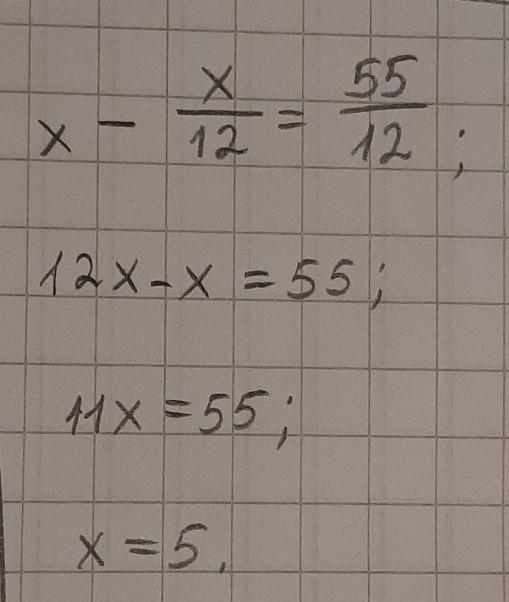 x - x/12 = 55/12;
12x - x = 55;
11x = 55;
x = 5.